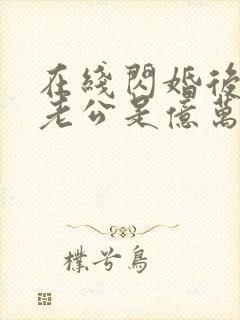 在綫閃婚後
老公是億萬
樸兮鳥